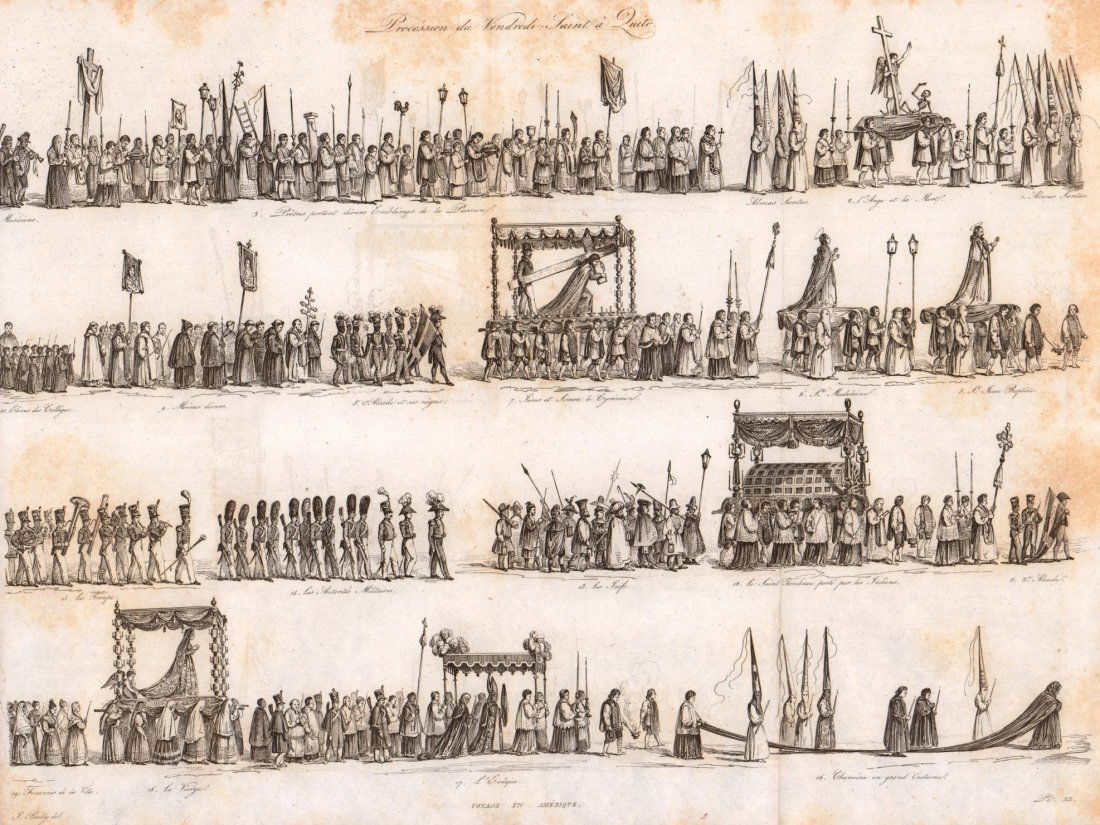 Procession du Vendredi-Saint à Quito.
Musiciens.
3. Pretres portant divers Emblêmes de la Passion.
Almas Santas.
2. l'Ange et la Mort.
1. Almas Santas.
10. Elèves des Collèges.
9. Moines divers.
8. 1er Alcade et ses nègres.
7. Jésus et Simon le Cyrénéen.
6. Ste Madeleine.
5. St Jean Baptiste.
15. La Troupe.
14. Les Autorités Militaires.
13. Les Juifs.
12. Le Saint Tombeau porté par les Indiens.
11. 2e Alcade.
19. Femmes de la Ville.
18. La Vierge.
17. L'Evêque.
16. Chanoine en grand Costume.
VOYAGE EN AMÉRIQUE.
Pl. XII.
J. Boilly del.